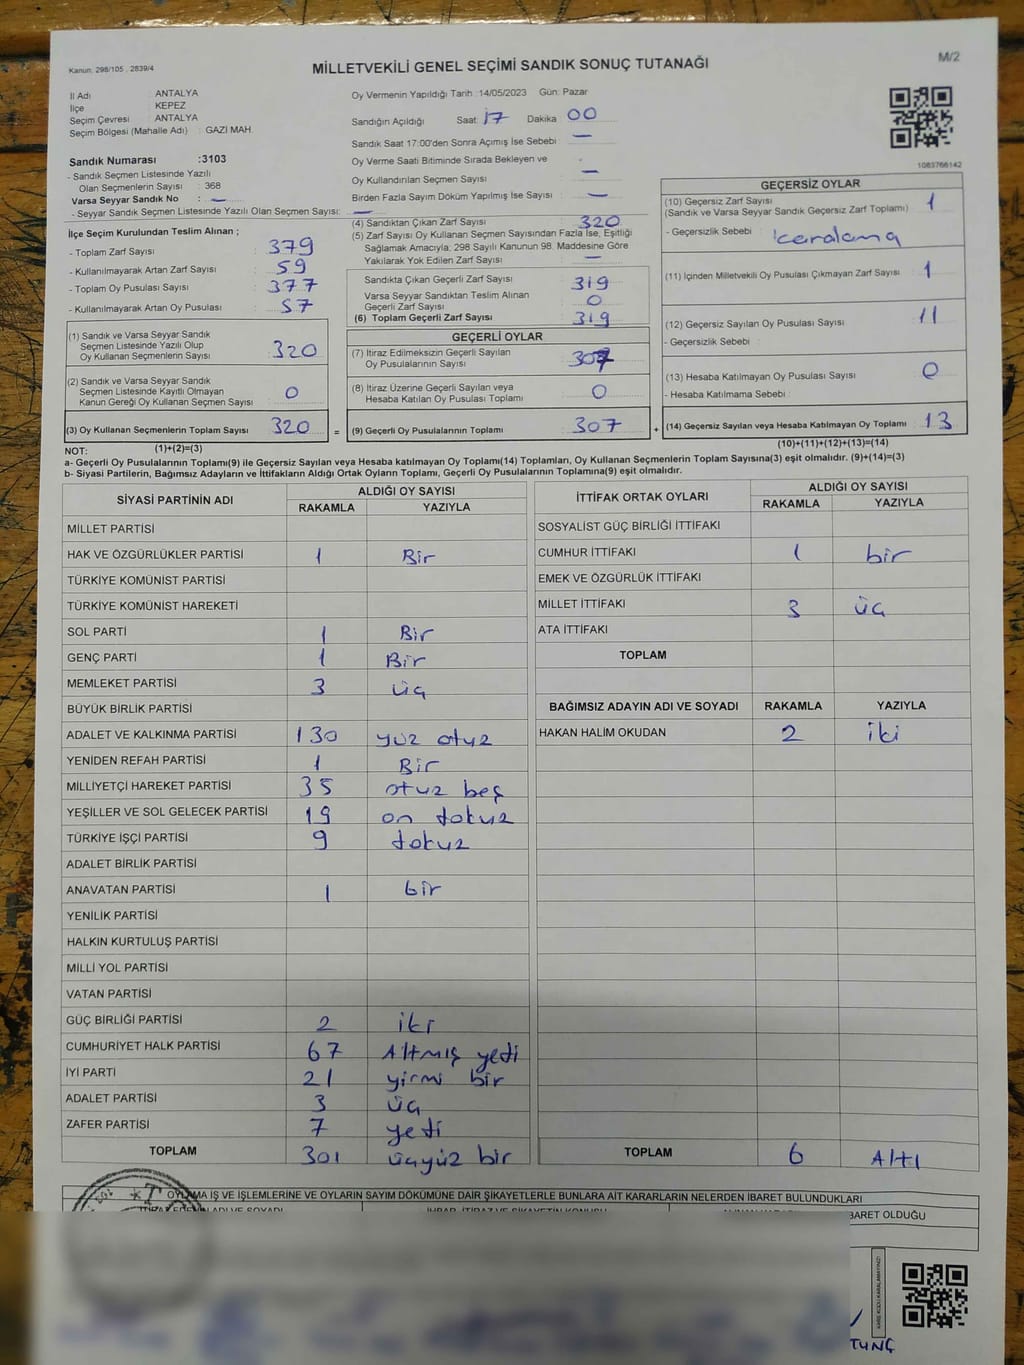 Kanun: 298/105 , 2839/4
MİLLETVEKİLİ GENEL SEÇİMİ SANDIK SONUÇ TUTANAĞI
M/2
İl Adı : ANTALYA
İlçe : KEPEZ
Seçim Çevresi : ANTALYA
Seçim Bölgesi (Mahalle Adı) : GAZİ MAH.
Sandık Numarası :3103
- Sandık Seçmen Listesinde Yazılı
Olan Seçmenlerin Sayısı : 368
Varsa Seyyar Sandık No : —
- Seyyar Sandık Seçmen Listesinde Yazılı Olan Seçmen Sayısı: —
İlçe Seçim Kurulundan Teslim Alınan ;
- Toplam Zarf Sayısı : 379
- Kullanılmayarak Artan Zarf Sayısı : 59
- Toplam Oy Pusulası Sayısı : 377
- Kullanılmayarak Artan Oy Pusulası : 57
(1) Sandık ve Varsa Seyyar Sandık
Seçmen Listesinde Yazılı Olup
Oy Kullanan Seçmenlerin Sayısı : 320
(2) Sandık ve Varsa Seyyar Sandık
Seçmen Listesinde Kayıtlı Olmayan
Kanun Gereği Oy Kullanan Seçmen Sayısı : 0
(3) Oy Kullanan Seçmenlerin Toplam Sayısı : 320 =
Oy Vermenin Yapıldığı Tarih :14/05/2023 Gün: Pazar
Sandığın Açıldığı Saat: 17 Dakika 00
Sandık Saat 17:00'den Sonra Açımış İse Sebebi : —
Oy Verme Saati Bitiminde Sırada Bekleyen ve
Oy Kullandırılan Seçmen Sayısı : —
Birden Fazla Sayım Döküm Yapılmış İse Sayısı : —
(4) Sandıktan Çıkan Zarf Sayısı : 320
(5) Zarf Sayısı Oy Kullanan Seçmen Sayısından Fazla İse, Eşitliği
Sağlamak Amacıyla; 298 Sayılı Kanunun 98. Maddesine Göre
Yakılarak Yok Edilen Zarf Sayısı : —
Sandıkta Çıkan Geçerli Zarf Sayısı : 319
Varsa Seyyar Sandıktan Teslim Alınan
Geçerli Zarf Sayısı : 0
(6) Toplam Geçerli Zarf Sayısı : 319
GEÇERLİ OYLAR
(7) İtiraz Edilmeksizin Geçerli Sayılan
Oy Pusulalarının Sayısı : 307
(8) İtiraz Üzerine Geçerli Sayılan veya
Hesaba Katılan Oy Pusulası Toplamı : 0
(9) Geçerli Oy Pusulalarının Toplamı : 307 +
1083766142
GEÇERSİZ OYLAR
(10) Geçersiz Zarf Sayısı : 1
(Sandık ve Varsa Seyyar Sandık Geçersiz Zarf Toplamı)
- Geçersizlik Sebebi : karalama
(11) İçinden Milletvekili Oy Pusulası Çıkmayan Zarf Sayısı : 1
(12) Geçersiz Sayılan Oy Pusulası Sayısı : 11
- Geçersizlik Sebebi :
(13) Hesaba Katılmayan Oy Pusulası Sayısı : 0
- Hesaba Katılmama Sebebi :
(14) Geçersiz Sayılan veya Hesaba Katılmayan Oy Toplamı : 13
NOT: (1)+(2)=(3) (10)+(11)+(12)+(13)=(14)
a- Geçerli Oy Pusulalarının Toplamı(9) ile Geçersiz Sayılan veya Hesaba katılmayan Oy Toplamı(14) Toplamları, Oy Kullanan Seçmenlerin Toplam Sayısına(3) eşit olmalıdır. (9)+(14)=(3)
b- Siyasi Partilerin, Bağımsız Adayların ve İttifakların Aldığı Ortak Oyların Toplamı, Geçerli Oy Pusulalarının Toplamına(9) eşit olmalıdır.
SİYASİ PARTİNİN ADI ALDIĞI OY SAYISI
RAKAMLA YAZIYLA
MİLLET PARTİSİ
HAK VE ÖZGÜRLÜKLER PARTİSİ 1 Bir
TÜRKİYE KOMÜNİST PARTİSİ
TÜRKİYE KOMÜNİST HAREKETİ
SOL PARTİ 1 Bir
GENÇ PARTİ 1 Bir
MEMLEKET PARTİSİ 3 üç
BÜYÜK BİRLİK PARTİSİ
ADALET VE KALKINMA PARTİSİ 130 yüz otuz
YENİDEN REFAH PARTİSİ 1 Bir
MİLLİYETÇİ HAREKET PARTİSİ 35 otuz beş
YEŞİLLER VE SOL GELECEK PARTİSİ 19 on dokuz
TÜRKİYE İŞÇİ PARTİSİ 9 dokuz
ADALET BİRLİK PARTİSİ
ANAVATAN PARTİSİ 1 bir
YENİLİK PARTİSİ
HALKIN KURTULUŞ PARTİSİ
MİLLİ YOL PARTİSİ
VATAN PARTİSİ
GÜÇ BİRLİĞİ PARTİSİ 2 iki
CUMHURİYET HALK PARTİSİ 67 Altmış yedi
İYİ PARTİ 21 yirmi bir
ADALET PARTİSİ 3 üç
ZAFER PARTİSİ 7 yedi
TOPLAM 301 üçyüz bir
İTTİFAK ORTAK OYLARI ALDIĞI OY SAYISI
RAKAMLA YAZIYLA
SOSYALİST GÜÇ BİRLİĞİ İTTİFAKI
CUMHUR İTTİFAKI 1 bir
EMEK VE ÖZGÜRLÜK İTTİFAKI
MİLLET İTTİFAKI 3 üç
ATA İTTİFAKI
TOPLAM
BAĞIMSIZ ADAYIN ADI VE SOYADI RAKAMLA YAZIYLA
HAKAN HALİM OKUDAN 2 iki
TOPLAM 6 Altı
OYLAMA İŞ VE İŞLEMLERİNE VE OYLARIN SAYIM DÖKÜMÜNE DAİR ŞİKAYETLERLE BUNLARA AİT KARARLARIN NELERDEN İBARET BULUNDUKLARI
BARET OLDUĞU
TUNÇ